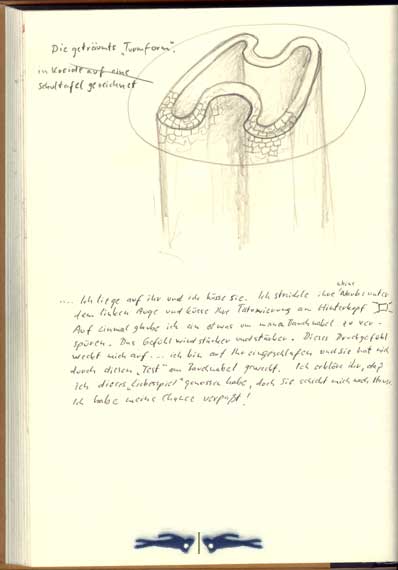 Die geträumte „Turmform“.
in Kreide auf eine
Schultafel gezeichnet
kleine
.... Ich liege auf ihr und ich küsse sie. Ich streichle ihre Narbe unter
dem linken Auge und küsse ihre Tätowierung am Hinterkopf
Auf einmal glaube ich ein etwas um meinen Bauchnabel zu ver-
spüren. Das Gefühl wird stärker und stärker. Dieses Druckgefühl
weckt mich auf. ... ich bin auf ihr eingeschlafen und sie hat mich
durch diesen „Test“ am Bauchnabel geweckt. Ich erkläre ihr, daß
ich dieses „Liebesspiel“ genossen habe, doch sie schickt mich nach Hause.
Ich habe meine Chance verpaßt!